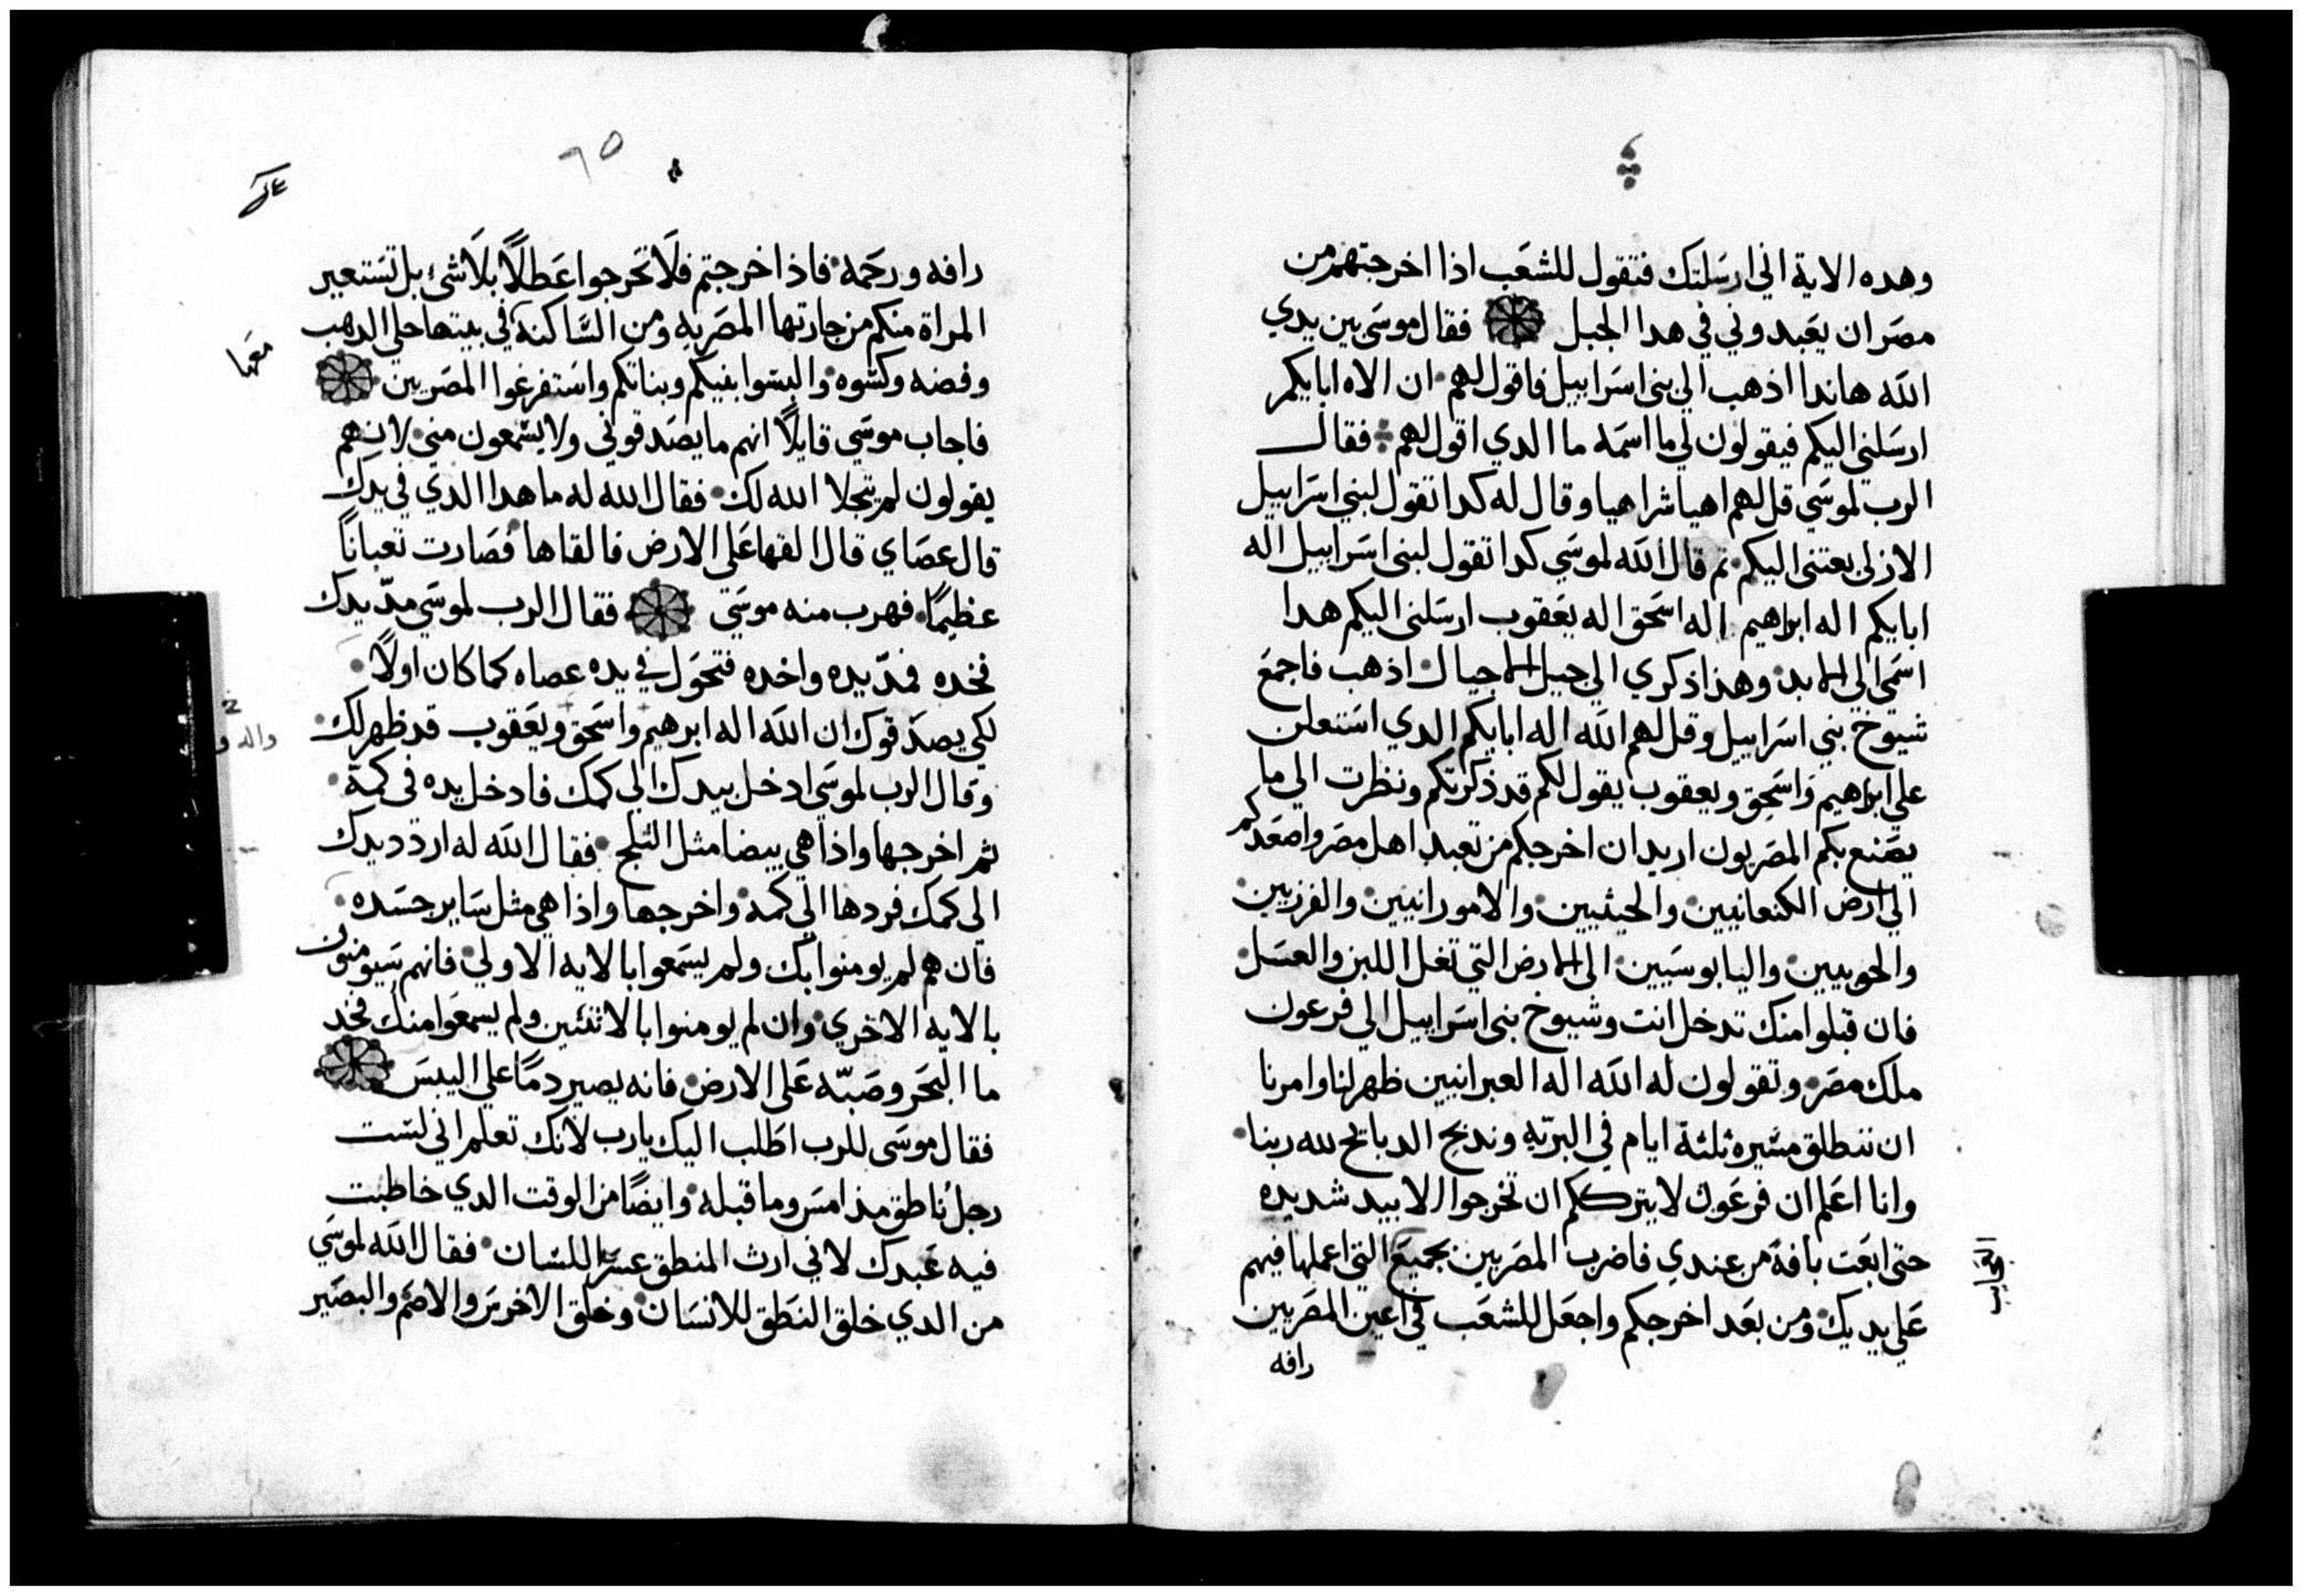 وهده الاية اني ارسلتك فتقول للشعب اذا اخرجتهم من
مصر ان يعبدوني في هدا الجبل فقال موسي بين يدي
الله هاندا اذهب الي بني اسراييل فاقول لهم ان الاه ابايكم
ارسلني اليكم فيقولون لي ما اسمه ما الدي اقول لهم فقال
الرب لموسي قل لهم اهيا شراهيا وقال له كدا تقول لبني اسراييل
الازلي بعتني اليكم تم قال الله لموسي كدا تقول لبني اسراييل اله
ابايكم اله ابراهيم اله اسحق اله يعقوب ارسلني اليكم هدا
اسمي الي الابد وهذا ذكري الي جيل الاجيال اذهب فاجمع
شيوخ بني اسراييل وقل لهم الله اله ابايكم الدي استعلن
علي ابراهيم واسحق ويعقوب يقول لكم قد ذكرتكم ونظرت الي ما
يصنع بكم المصريون اريد ان اخرجكم من تعبد اهل مصر واصعدكم
الي ارض الكنعانيين والحيثيين والامورانيين والفرزيين
والحويين واليابوسيين الي الارض التي تغل اللبن والعسل
فان قبلوا منك تدخل انت وشيوخ بني اسراييل الي فرعون
ملك مصر وتقولون له الله اله العبرانيين ظهر لنا وامرنا
ان ننطلق مسيره ثلثة ايام في البريه وندبح الدبايح لله ربنا
وانا اعلم ان فرعون لا يترككم ان تخرجوا الا بيد شديده
حتي ابعت بافة من عندي فاضرب المصريين بجميع التي اعملها فيهم
علي يديك ومن بعد اخرجكم واجعل للشعب في اعين المصريين
رافه
رافه ورحمه فاذا خرجتم فلا تخرجوا عطلا بلا شئ بل تستعير
المراة منكم من جارتها المصريه ومن الساكنة في بيتها حلي الدهب
معها
وفضه وكسوه والبسوا بنيكم وبناتكم واستفرغوا المصريين
فاجاب موسي قايلا انهم ما يصدقوني ولا يسمعون مني لانهم
يقولون لم يتجلا الله لك فقال الله له ما هدا الدي في يدك
قال عصاي قال القها علي الارض فالقاها فصارت تعبانا
عظيما فهرب منه موسي فقال الرب لموسي مد يدك
فخده فمد يده واخده فتحول في يده عصاه كما كان اولا
لكي يصدقوك ان الله اله ابرهيم واسحق ويعقوب قد ظهر لك
وقال الرب لموسي ادخل بيدك الي كمك فادخل يده في كمة
ثم اخرجها واذا هي بيضا مثل الثلج فقال الله له اردد يدك
الي كمك فردها الي كمه واخرجها واذا هي مثل ساير جسده
فان هم لم يومنوا بك ولم يسمعوا بالايه الاولي فانهم سيومنون
بالايه الاخري وان لم يومنوا بالاثنتين ولم يسمعوا منك فخد
ما البحر وصبه علي الارض فانه يصير دما علي اليبس
فقال موسي للرب اطلب اليك يارب لانك تعلم اني لست
رجل ناطق منذ امس وما قبله وايضا من الوقت الدي خاطبت
فيه عبدك لاني ارث المنطق عسر اللسان فقال الله لموسي
من الدي خلق النطق للانسان وخلق الاخرس والاصم والبصير